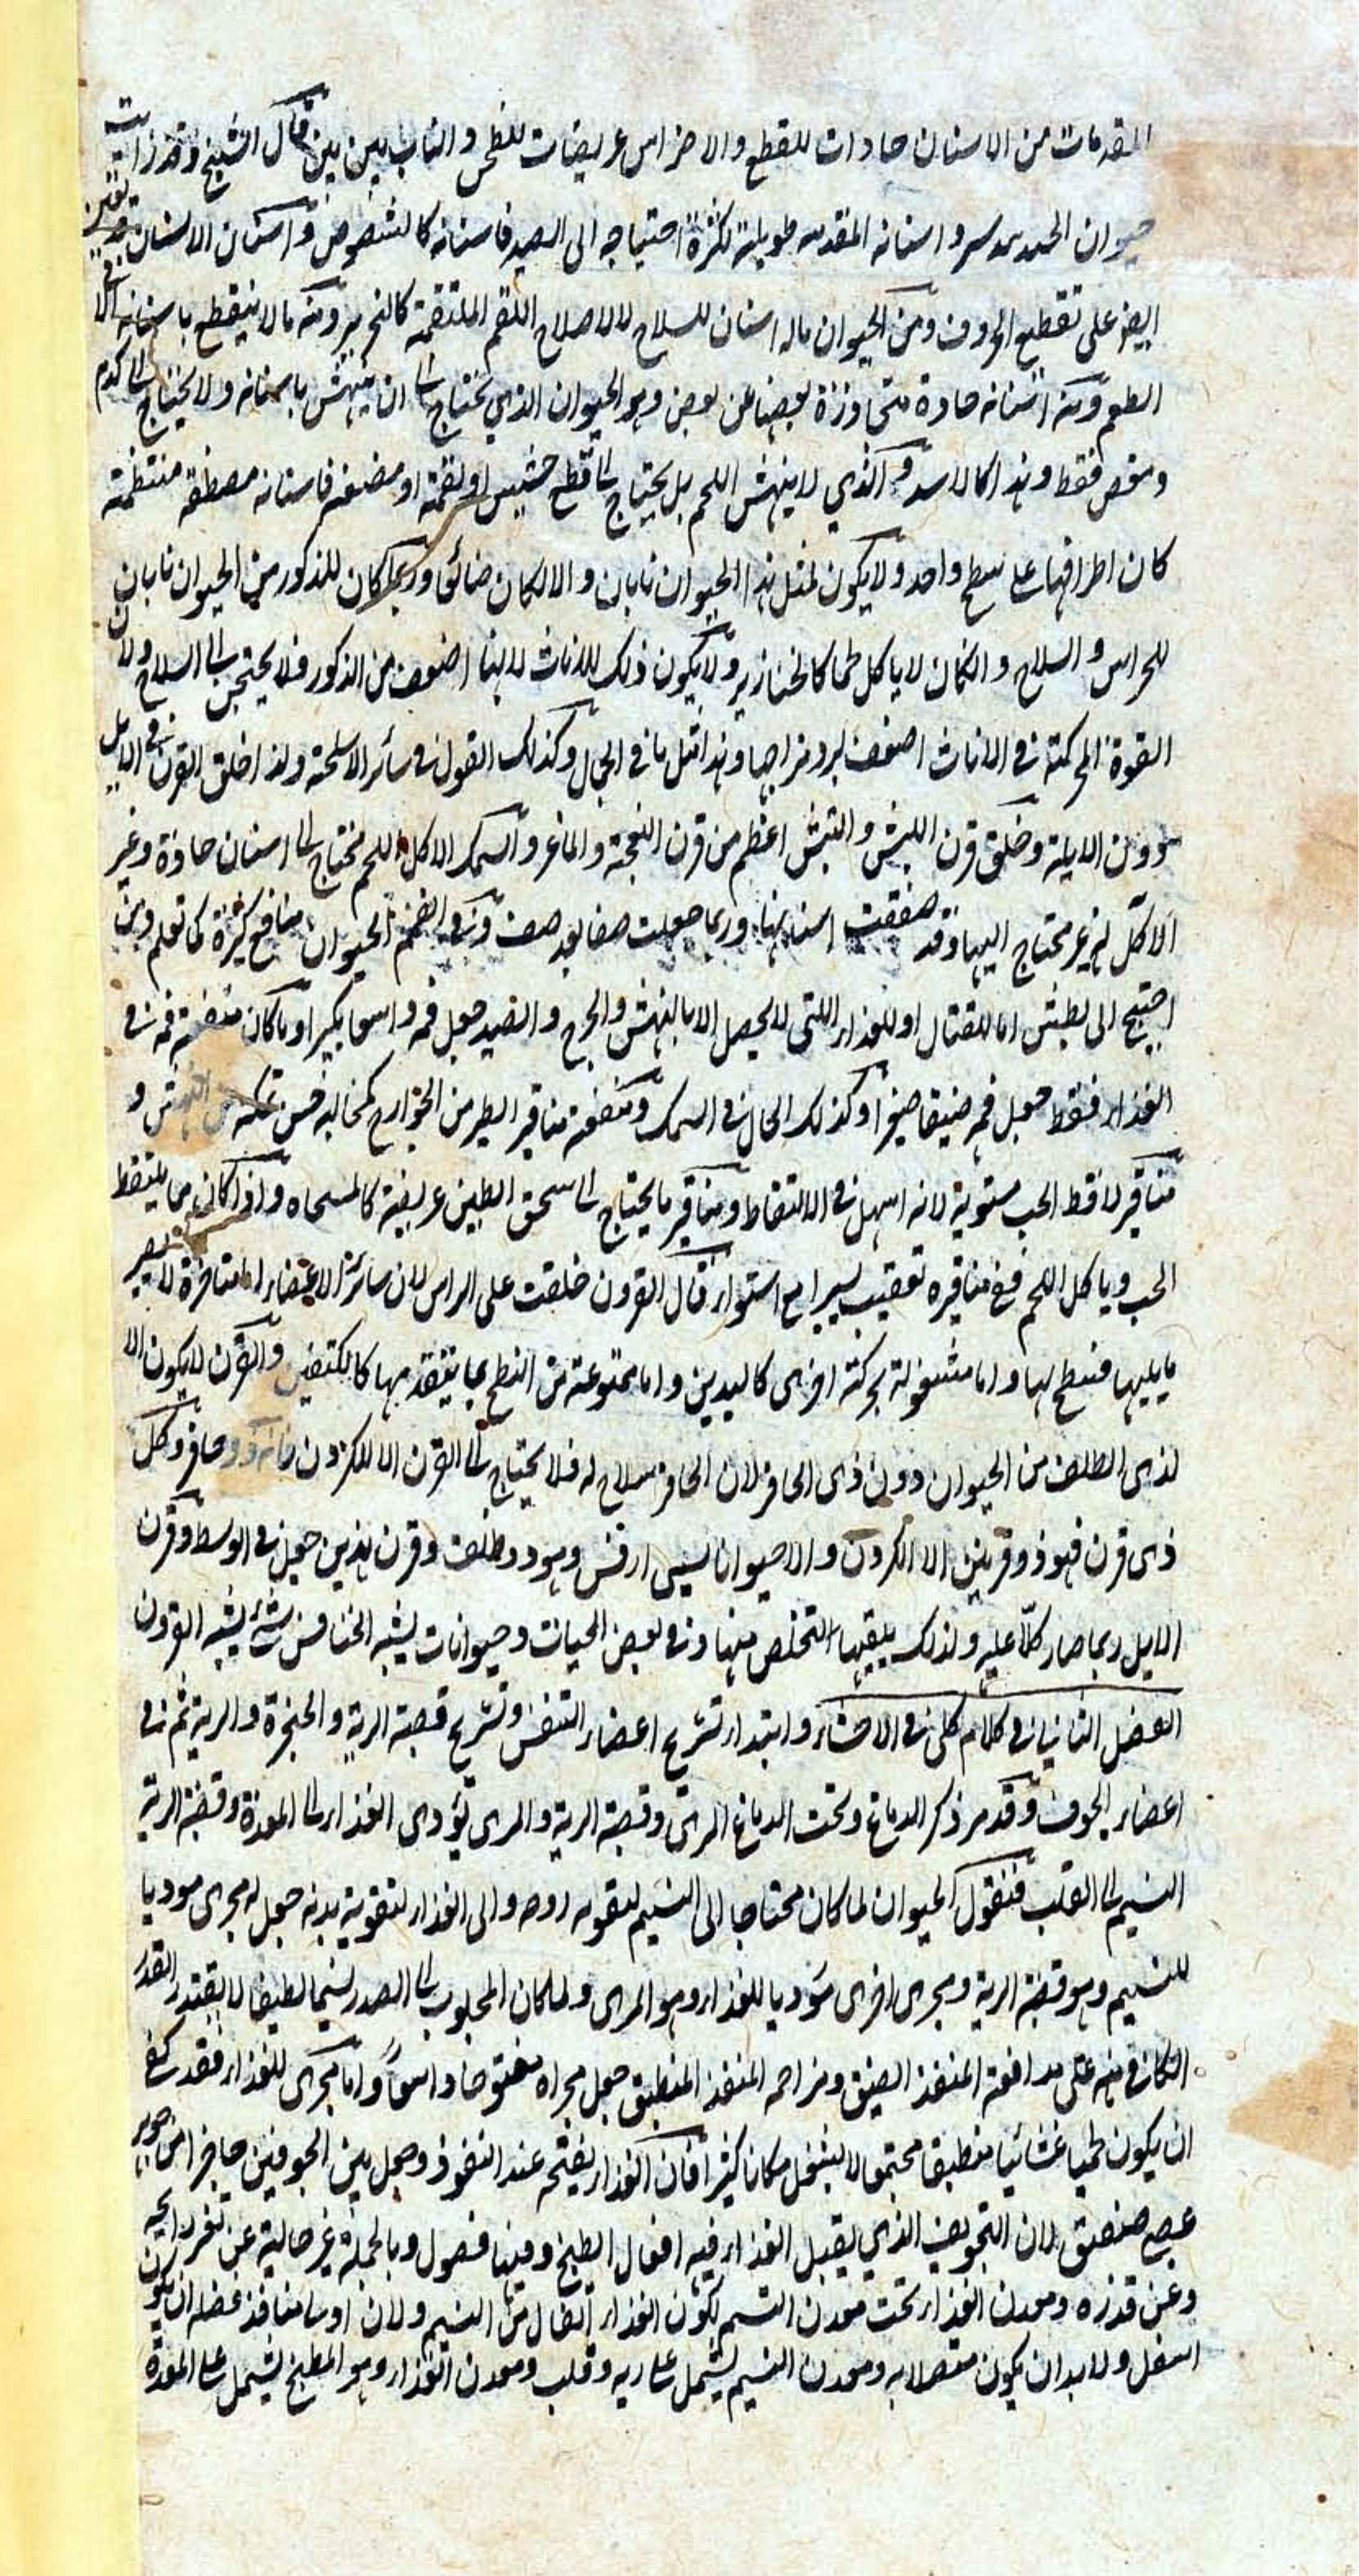 المقدمات من الاسنان حادات للقطع والاضراس عريضات للطحن والناب بين بين قال الشيخ وقد رايت
حيوان واسنانه المقدمه طويلة لكثرة احتياجه الى الصيد فاسنانه كالشصوص واسنان الانسان تعين
ايضا على تقطيع الحروف ومن الحيوان ماله اسنان للسلاح لا لاصلاح اللقم الملتقمة كالخنزير ومنه مالا ينقطع باسنانه الا
الطعم ومنه اسنانه حادة متجاوزة بعضها عن بعض وهو الحيوان الذي يحتاج الى ان ينهش باسنانه ولا يحتاج الى كدم
وعض فقط وهذا كالاسد والذي لا ينهش اللحم بل يحتاج الى قطع حشيش او لقمة او مضغه فاسنانه مصطفة منتظمة
كان اطرافها على سطح واحد ولا يكون لمثل هذا الحيوان نابان والا لكان ضائق وربما كان للذكور من الحيوان نابان
للحراس والسلاح وان كان لا ياكل لحما كالخنازير ولا يكون ذلك للاناث لانها اضعف من الذكور فلا يحتجن الى السلاح ولان
القوة المحركة في الاناث اضعف لبرد مزاجها وهذا مثل ما في الجمل وكذلك القول في سائر الاسلحة ولذا خلق القرن في الايل
دون الايلة وخلق قرن الكبش والتيس اعظم من قرن النعجة والماعز والسمك الاكل اللحم محتاج الى اسنان حادة وغير
الاكل له غير محتاج اليها وقد صففت اسنانها وربما جعلت صفا بعد صف وفي الضم الحيوان منافع كثيرة كما تعلم ومن
احتيج الى بطش اما للقتال او للغذاء اللتي لا يحصل الا بالنهش والجرح والصيد جعل فمه واسعا كبيرا وما كان منفعة فمه في
الغذاء فقط جعل فمه ضيقا صغيرا وكذلك الحال في السمك ومنفعة مناقير الطير من الجوارح كمخالبه فمن تمكنه من النهش و
مناقير لاقط الحب مستوية لانه اسهل في الالتقاط ومناقير ما يحتاج الى سحق الطين عريضة كالمسحاه واذا كان مما يلتقط
الحب وياكل اللحم ففي مناقيره تعقيب يسير مع استواء قال القرون خلقت على الراس لان سائر الاعضاء المتاخرة لا يصير
ما يليها فينطح لها واما مشغولة بحركة اخرى كاليدين واما ممنوعة من النطح بما يتقدمها كالكتفين والقرن لا يكون الا
لذى الظلف من الحيوان دون ذى الحافر لان الحافر سلاح له فلا يحتاج الى القرن الا للكردن فانه ذو حافر وكل
ذى قرن فهو ذو قرنين الا الكردن والا حيوانا يسمى ارقس وهو ذو ظلف وقرن هذين جعل في الوسط وقرن
الايل ربما صار كلا عليه ولذلك يلقيها للتخلص منها وفي بعض الحيات وحيوانات يشبه الخنافس شئ يشبه القرون
الفصل الثاني في كلام كلى في الاحشاء وابتداء تشريح اعضاء التنفس وتشريح قصبة الرية والحنجرة والرية ثم في
اعضاء الجوف وقد مر ذكر الدماغ وتحت الدماغ المرى وقصبة الرية والمرى يؤدى الغذاء الى المعدة وقصبة الرية
النسيم الى القلب فنقول الحيوان لما كان محتاجا الى النسيم لتقويه روحه والى الغذاء لتقوية بدنه جعل له مجرى موديا
للنسيم وهو قصبة الرية ومجرى اخرى موديا للغذاء وهو المرى ولما كان المجلوب الى الصدر نسيما لطيفا لا يقتدر القدر
الكافى منه على مدافعة المنفذ الضيق ومزاحمة المنفذ المنطبق جعل مجراه مفتوحا واسعا واما مجرى للغذاء فقد كفى
ان يكون لحميا غشائيا منطبقا مجتمعا لا يشغل مكانا كثيرا فان الغذاء يفتحه عند النفوذ وجعل بين الجوفين حاجزا من جوهر
عصبى صفيق لان التجويف الذي يقبل الغذاء فيه افعال الطبخ وفيها فضول وبالجملة غير خالية عن تغير رائحة
وعن قذره ومعدن الغذاء تحت معدن النسيم لكون الغذاء اثقل من النسيم ولان اوسا منافذ فضله ان يكون
اسفل ولا بد ان يكون متصلا به ومعدن النسيم يشتمل على رية وقلب ومعدن الغذاء وهو المطبخ يشتمل على المعدة